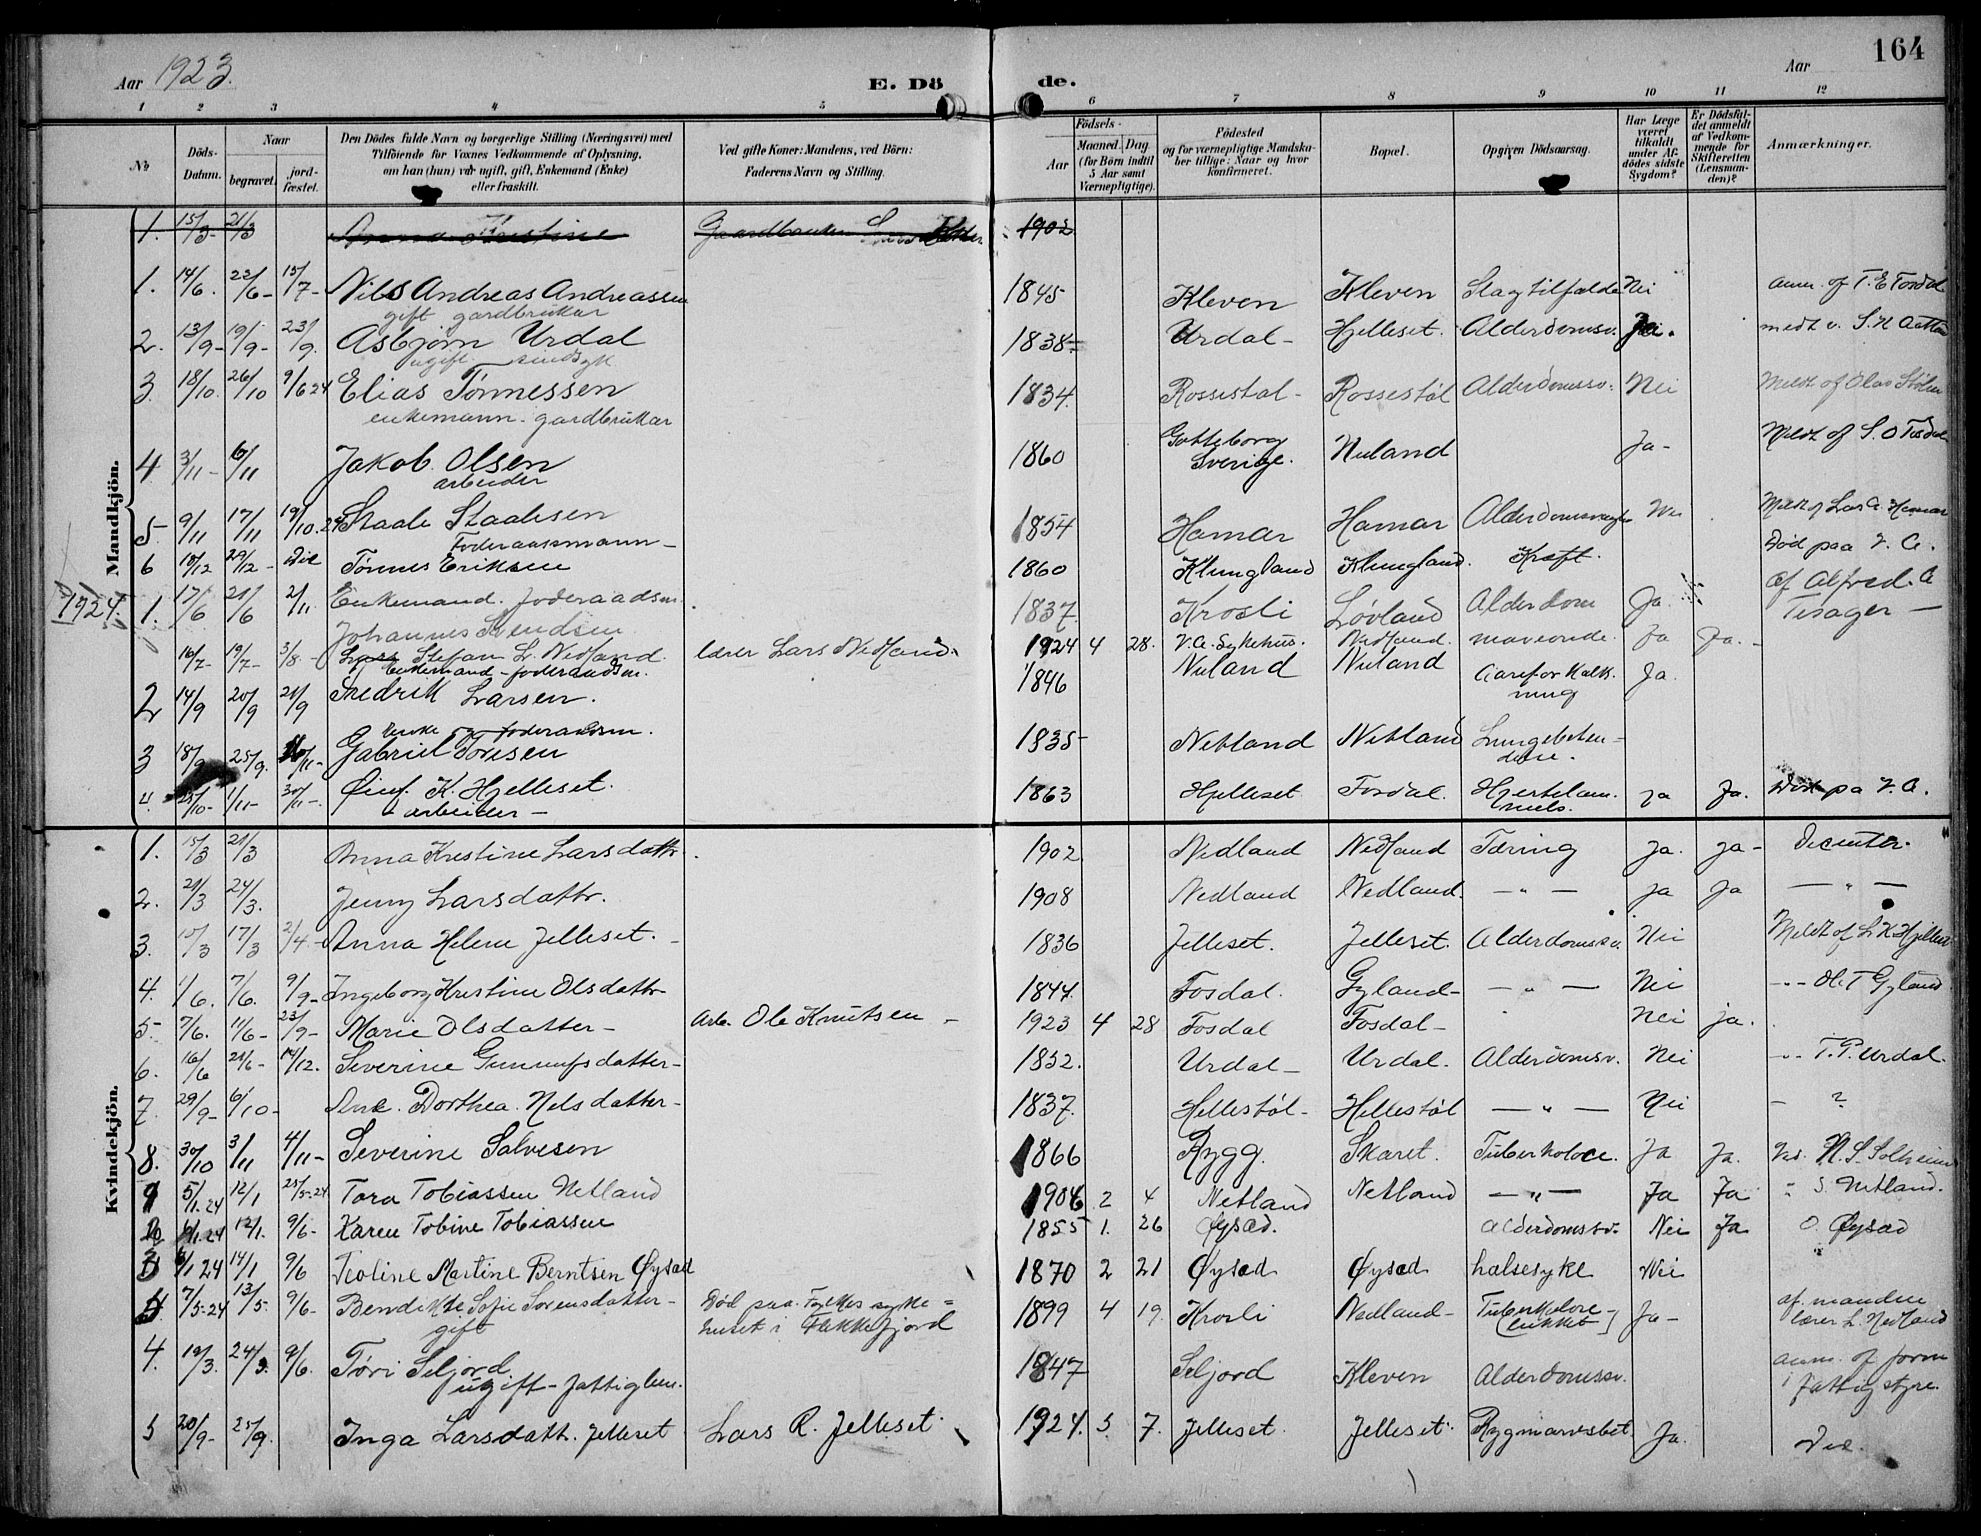 Aar 1923.
E. Dö de.
Aar
164
1 2 3 4 5 6 7 8 9 10 11 12
No
Döds-Datum.
Naar
begravet.
jord-fæstet.
Den Dödes fulde Navn og borgerlige Stilling (Næringsvei) med
Tilföiende for Voxnes Vedkommende af Oplysning,
om han (hun) var ugift, gift, Enkemand (Enke)
eller fraskilt.
Ved gifte Koner: Mandens, ved Börn:
Faderens Navn og Stilling.
Födsels-
Aar
Maaned. Dag
(for Börn indtil
5 Aar samt
Værnepligtige).
Födested
og for værnepligtige Mandska-
ber tillige: Naar og hvor
konfirmeret.
Bopæl.
Opgiven Dödsaarsag.
Har Læge
været
tilkaldt
under Af-
dödes sidste
Sygdom?
Er Dödsfal-
det anmeldt
af Vedkom-
mende for
Skifteretten
(Lensman-
den)?
Anmærkninger.
Mandkjön.
1. 15/3- 21/3 Anna Kristine Gaardbruker 1902
1. 14/6. 22/6- 15/7- Nils Andreas Andreassen 1845 Kleven Kleven Slagtilfælde Nei anm. of T. E. Fosdal
gift gardbrukar
2. 13/9- 19/9- 23/9. Asbjørn Urdal 1838- Urdal- Hjelleset. Alderdomsv. Ja. medt v. S. N.
ugift sindsyk
3. 18/10. 26/10 9/6 24 Elias Tønnessen 1834. Rossestøl- Rossestøl Alderdomssv. Nei Meldt of Olav Stølen
enkemann- gardbrukar
4 3/11- 10/11 Jakob Olsen 1860 Gotteborg Sverige. Nuland Ja- Meldt of S. O Fosdal
arbeider
5- 9/11 17/11 19/10.24 Staale Staalesen 1854 Hamar Hamar Nei Meldt of Lars A. Hamar
Foderaassmann-
6 18/12 29/12- Die Tønnes Eriksen 1860 Klungland Klungland. Kræft. Død paa V. A.
1924.
1. 17/6 21/6 2/11 Enkemand. foderaadsm. 1837. Krosli Løvland Alderdom Ja. af Alfred. A
Johannes Svendsen Tisager-
16/7- 19/7- 3/8- Lars Stefan L. Nedland. lærer Lars Nedland. 1924 4 28. V.A. Sykehus. Nedland. maveonde. Ja Ja.-
Enkemand- foderaadsm.
2 14/9 20/9 21/9 Fredrik Larsen. 1846 Nuland Nuland Aareforkalk-ning Ja.
Enke og foderaadsm.
3 18/9 25/9. 16/11- Gabriel Toresen 1835- Netland Netland Lungebeten-delse.
4. 25/10- 1/11- 30/11-. K. Hjelleset. 1863 Hjelleset Fosdal. Hjertelam-melse. Ja Ja. Død pa V. A.
- arbeider-
Kvindekjön.
1. 15/3 21/3 Anna Kristine Larsdattr. 1902 Nedland Nedland Tæring Ja. Ja-
2. 21/3 24/3. Jenny Larsdattr. 1908 Nedland Nedland. - " - Ja Ja - " -
3. 15/3 17/3 2/4- Anna Helene Jelleset.- 1836 Jelleset. Jelleset. Alderdomssv. Nei Meldt of L. K. Hjelleset
4. 1/6. 7/6. 9/9- Ingeborg Kristine Olsdattr 1844. Fosdal. Gyland- - " - Nei -"- H. T Gyland
5- 7/6. 11/6- 23/9- Marie Olsdatter- Arb. Ole Knutsen- 1923 4 28 Fosdal Fosdal- " Nei ja.
6. 16/6 21/6- 14/12. Severine Gunnufsdatter- 1832. Urdal- Urdal. Alderdomsv. Nei -"- T. P. Urdal.
7. 29/9- 6/10- Ane. Dorthea. Nilsdatter- 1837. Hellestøl- Hellestøl - " - Nei - ?
8. 30/10 3/11 4/11- Severine Salvesen 1866 Rygg. Skaret. Tuberkolose. Ja Ja. Ved. N. S. Solheim
9 5/1.24 12/1 25/5-24 Tora Tobiassen Netland 1906 2 4 Netland Netland - " - Ja Ja " S. Netland.
1/1.24 12/1. 9/6- Karen Tobine Tobiassen 1855 1. 26 Øysæd. Alderdomssv. Nei Ja O. Øysæd
1/1 24 14/1 9/6 Teoline Martine Berntsen Øysæd 1870 2 21 Øysæd Øysæd halsesyke Nei
7/5-24 13/5. 9/6- Bendikte Sofie Sørensdatter- Død paa Fylkes syke= 1899 4 19. Krosli Nedland- Tuberkelose- Ja- af manden
gift huset i Flekkefjord lærer L. Nedland
4. 19/3. 24/3. 9/6. Tøri Seljord 1847 Seljord Kleven Alderdomssv. anm. of form
ugift- fattiglem. i fattigstyre.
5 20/9- 25/9. Inga Larsdattr. Jelleset Lars R. Jelleset. 1924. 5. 7. Jelleset. Jelleset. Rygmarvsbet. Ja. Die.